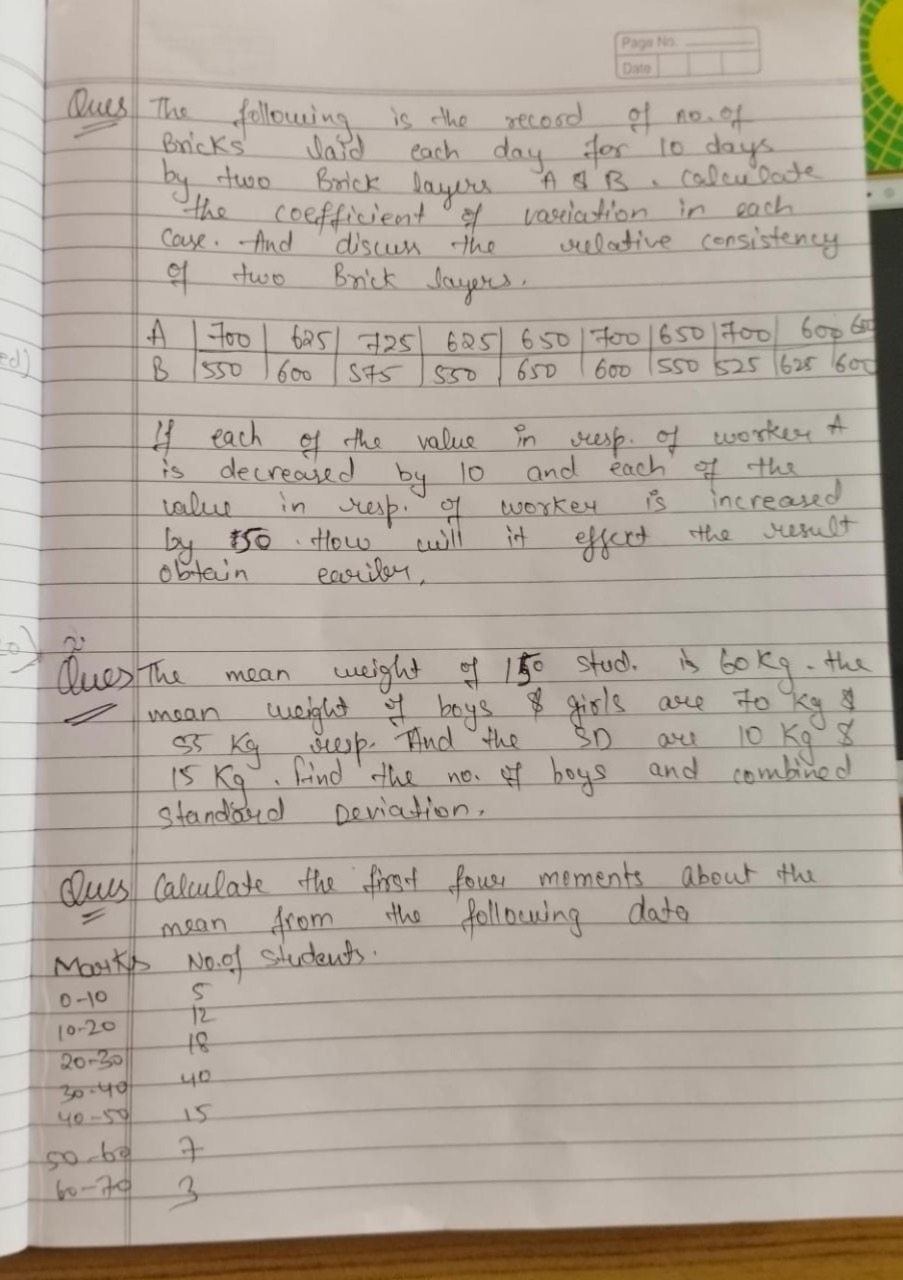 Page No.
Date
Ques The following is the record of no. of
Bricks laid each day for 10 days
by two Brick layers A & B. Calculate
the coefficient of variation in each
case. And discuss the relative consistency
of two Brick layers.
A 700 625 725 625 650 700 650 700 600 600
B 550 600 575 550 650 600 550 525 625 600
ed)
If each of the value in resp. of worker A
is decreased by 10 and each of the
value in resp. of worker is increased
by 50. How will it effect the result
obtain eariler.
Ques The mean weight of 150 stud. is 60 Kg. the
mean weight of boys & girls are 70 kg &
55 Kg resp. And the SD are 10 Kg &
15 Kg. find the no. of boys and combined
standard Deviation.
Ques Calculate the first four moments about the
mean from the following data
Marks No. of students.
0-10 5
10-20 12
20-30 18
30-40 40
40-50 15
50-60 7
60-70 3